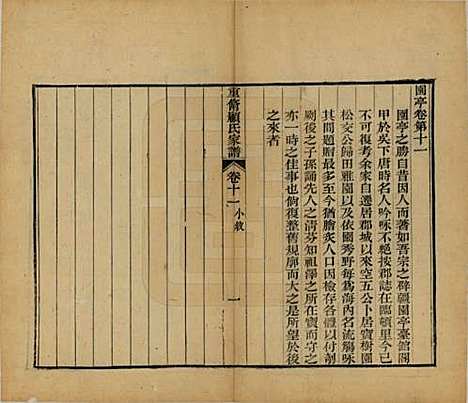 園亭卷第十一
園亭之勝自昔因人而著如吾宗之辟疆園亭臺館閣
甲於吳下唐時名人吟咏不絕按郡誌在臨頓里今已
不可復考余家自遷居郡城以來空五公卜居寶樹園
松交公歸田雅園以及依園秀野每爲海內名流觴咏
其間題贈最多至今猶膾炙人口因檢存各體以付剞
劂後之子孫誦先人之清芬知祖澤之所在寶而守之
亦一時之佳事也倘復整舊規廓而大之是所望於後
之來者
重脩顧氏家譜
卷十一 小敘
一